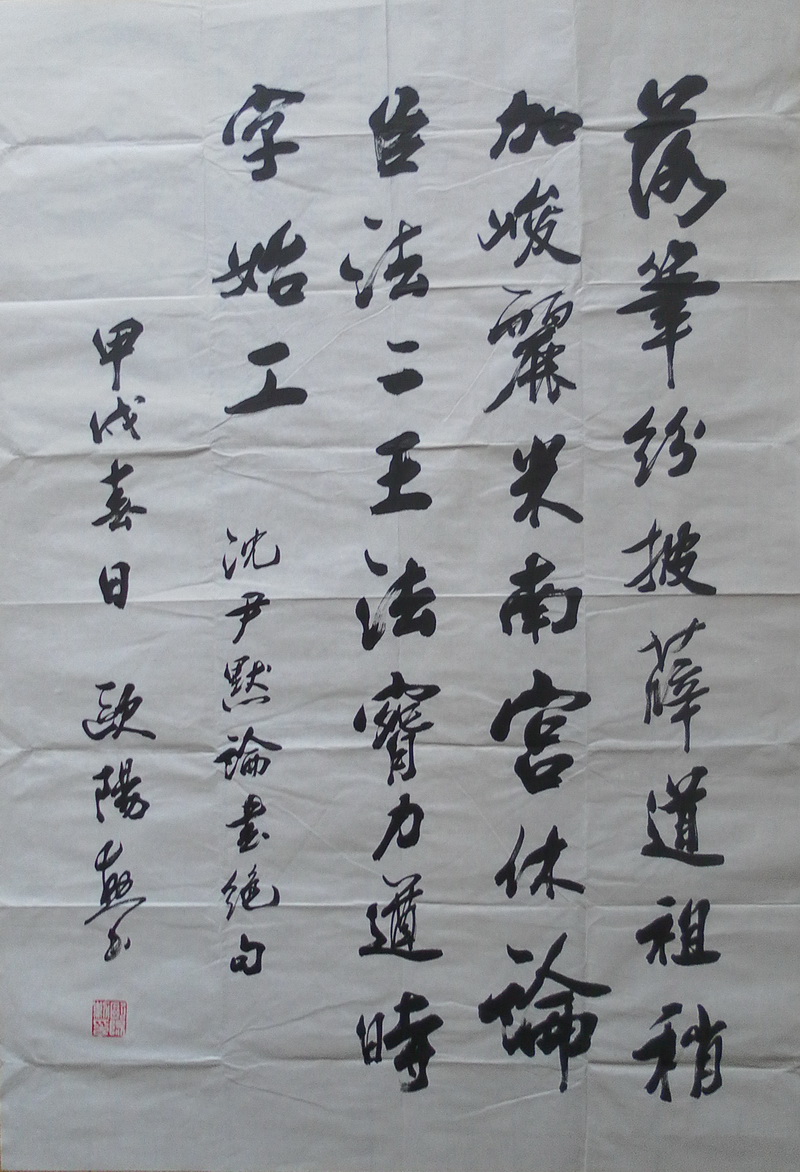 落筆紛披薛道祖稍
加峻麗米南宮休論
臣法二王法腕力遒時
字始工 沈尹默論書絕句
甲戌春日 歐陽